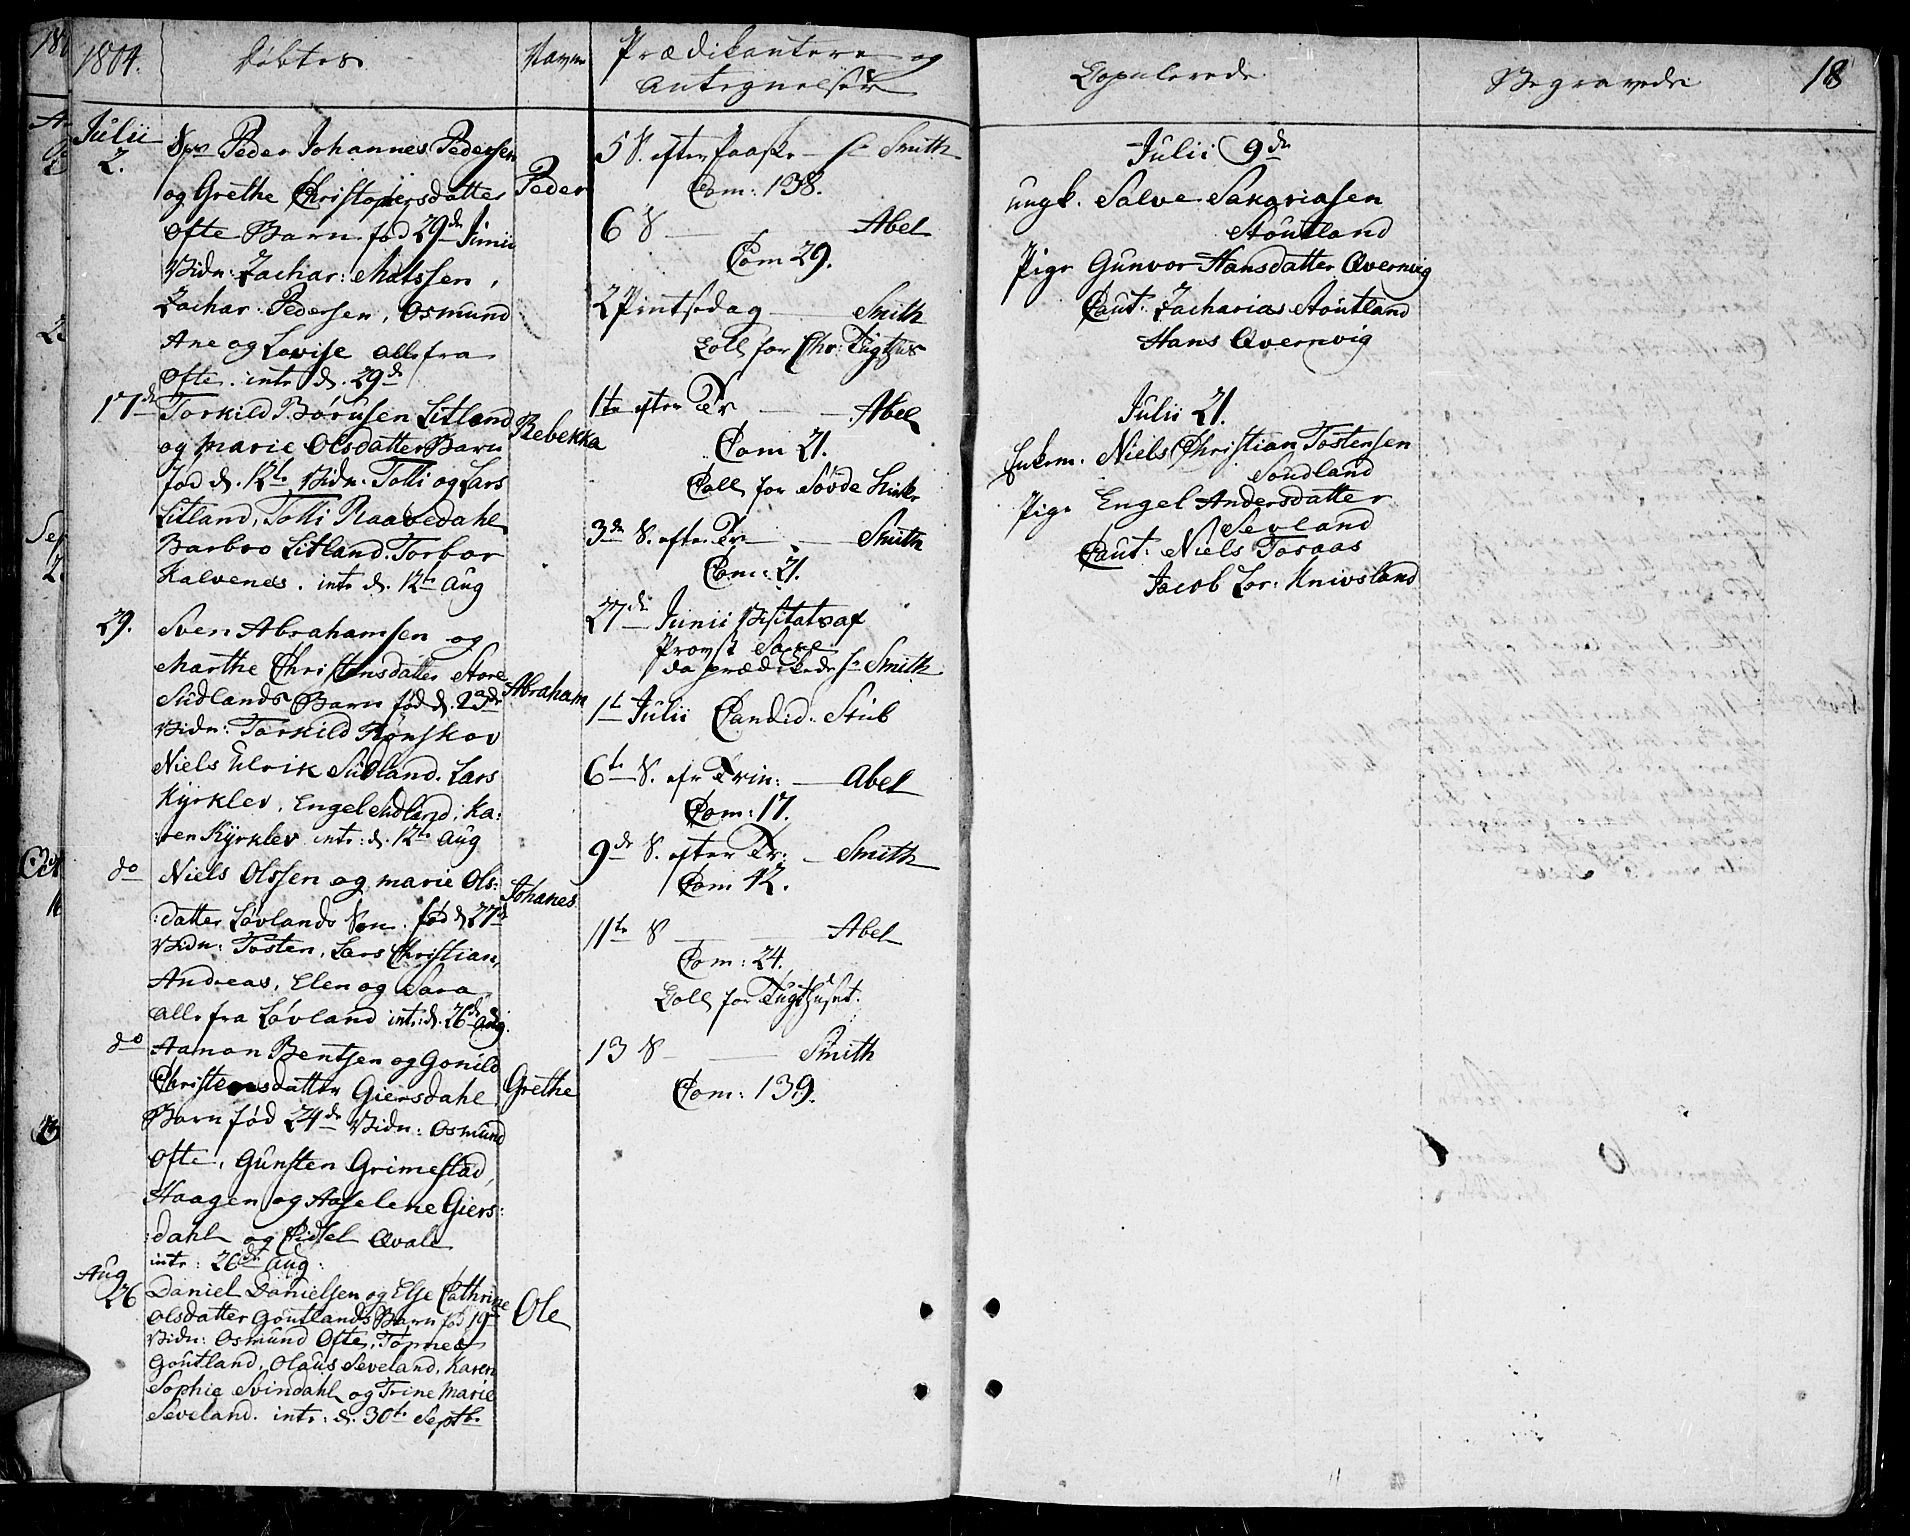 1804.
Døbtes
Navne
Prædikantere og
Antegnelser
Julii
2.
Peder Johannes Pedersen
og Grethe Christophersdatter
Ofte Barn fød 29de Junii
Vidn: Zachar: Matssen,
Zachar: Pedersen, Osmund
Ane og Lovise alle fra
Ofte. intr d. 29de
Peder
17de
Torkild Børusen Litland
og Marie Olsdatter Barn
fød d. 12te Vidn. Tolli og Lars
Litland, Tolli Raavedahl
Barbro Litland. Torbor
Kalvenes. intr d. 12te Aug
Rebekka
29.
Sven Abrahamsen og
Marthe Christensdatter Store
Sudlands Barn fød d. 23de
Vidn: Torkild Rønskov
Niels Ulrik Sudland. Lars
Kyrklev, Engel Midland, Ka:
:ren Kyrklev intr: d. 12te Aug
Abraham
do
Niels Olssen og Marie Ols:
:datter Løvlands Søn fød d 27de
Vidn: Tosten, Lars Christian,
Andreas, Elen og Sara
alle fra Løvland intr: d. 26de Aug.
Johanes
do
Aanon Bentsen og Gonild
Christensdatter Giersdahl
Barn fød 24de Vidn: Osmund
Ofte, Gunsten Grimestad,
Haagen og Aaselene Giers:
:dahl og Sidsel Qvale
intr: 26de Aug:
Grethe
Aug
26
Daniel Danielsen og Else Cathrine
Olsdatter Goutlands Barn fød 19de
Vidn: Osmund Ofte, Tønnes
Goutland, Olaus Seveland. Karen
Sophie Svindahl og Trine Marie
Seveland. intr: d. 30te Septbr
Ole
5 S. efter Paaske — Smith
Com: 138.
6 S — Abel
Com 29.
2 Pintsedag — Smith
Coll for Chr: Tugthus
1te efter Tr — Abel
Com 21.
Coll for Sovde Kirke
3de S. efter Tr — Smith
Com: 21.
27de Junii Visitats af
Provst
da prædikede Smith
1te Julii Candid. Stub
6te S. efr Trin: — Abel
Com: 17.
9de S. efter Tr: — Smith
Com 42.
11te S — Abel
Com: 24.
Coll for Tugthuset.
13 S — Smith
Com: 139.
Copulerede
Begravede
18
Julii 9de
Ungk. Salve Sakariasen
Stoutland
Pige Gunvor Hansdatter Qvernvig
Caut: Zacharias Stoutland
Hans Qvernvig
Julii 21.
Enkem. Niels Christian Tostensen
Soudland
Pige Engel Andersdatter
Sevland
Caut: Niels Tosaas
Jacob Lor: Knivsland